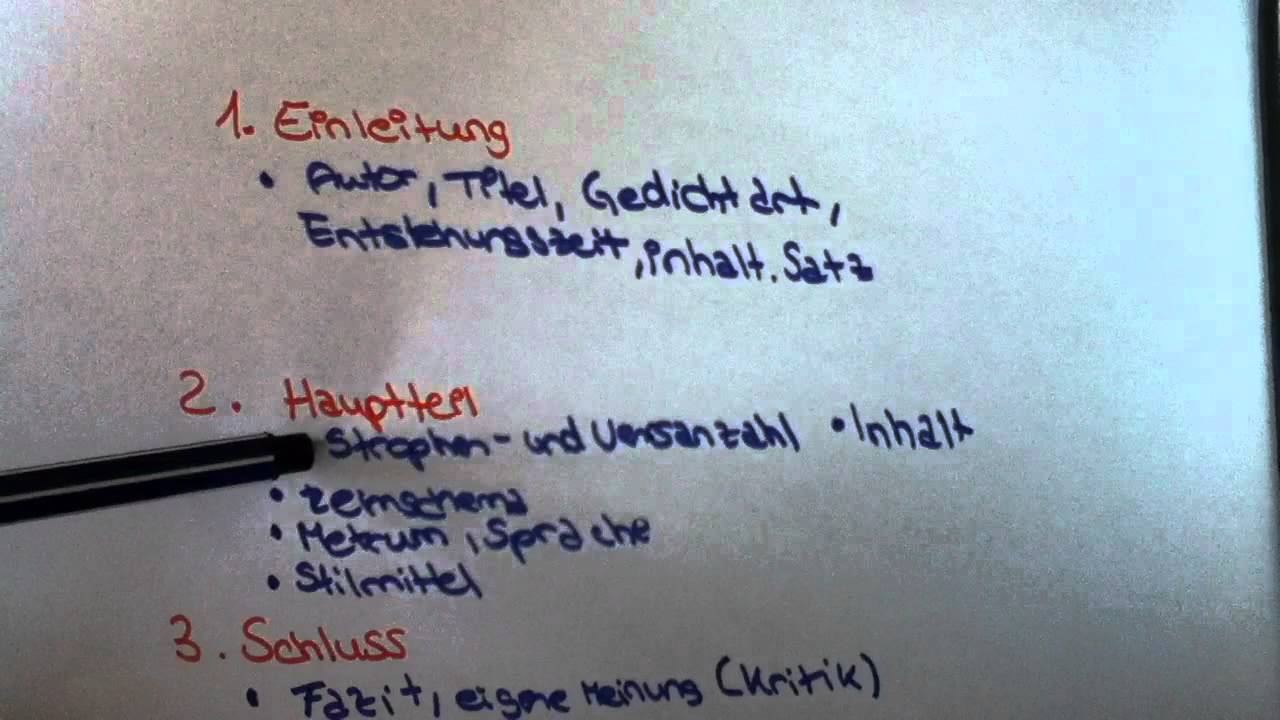 1. Einleitung
• Autor, Titel, Gedichtart,
Entstehungszeit, inhalt. Satz
2. Hauptteil
Strophen- und Versanzahl • Inhalt
• Reimschema
• Metrum, Sprache
• Stilmittel
3. Schluss
• Fazit, eigene Meinung (Kritik)